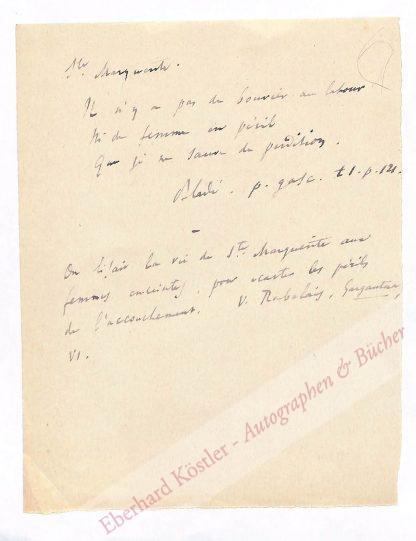 Ste Marguerite.
Il n'y a pas de bouvier au labour
Ni de femme en péril
Que je ne sauve de perdition.
Bladé. p. gasc. t1. p. 121.
On lisait la vie de Ste Marguerite aux
femmes enceintes, pour écarter les périls
de l'accouchement. V. Rabelais, Gargantua,
VI.
Eberhard Köstler - Autographen & Bücher